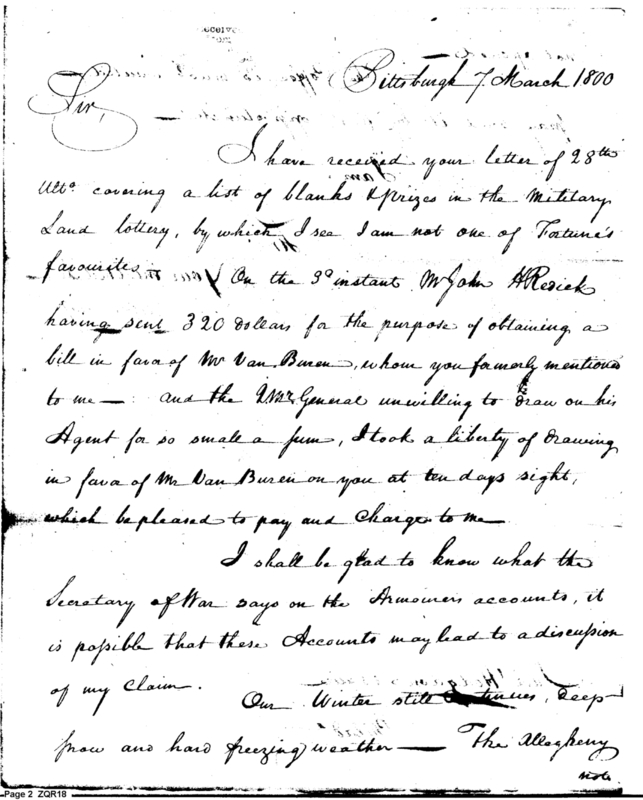 Pittsburgh 7 March 1800
Sir,
I have received your letter of 28th
Ulto. covering a list of blanks & prizes in the Military
Land lottery, by which I see I am not one of Fortune's
favourites On the 3d instant Mr John H Redick
having sent 320 dollars for the purpose of obtaining a
bill in favor of Mr Van Buren, whom you formerly mentioned
to me — and the QMr General unwilling to draw on his
Agent for so small a sum, I took a liberty of drawing
in favor of Mr Van Buren on you at ten days sight,
which be pleased to pay and Charge to me —
I shall be glad to know what the
Secretary of War says on the Armourers accounts, it
is possible that these Accounts may lead to a discussion
of my Claim.
Our Winter still continues, deep
snow and hard freezing weather — The Allegheny
note
Page 2 ZQR18